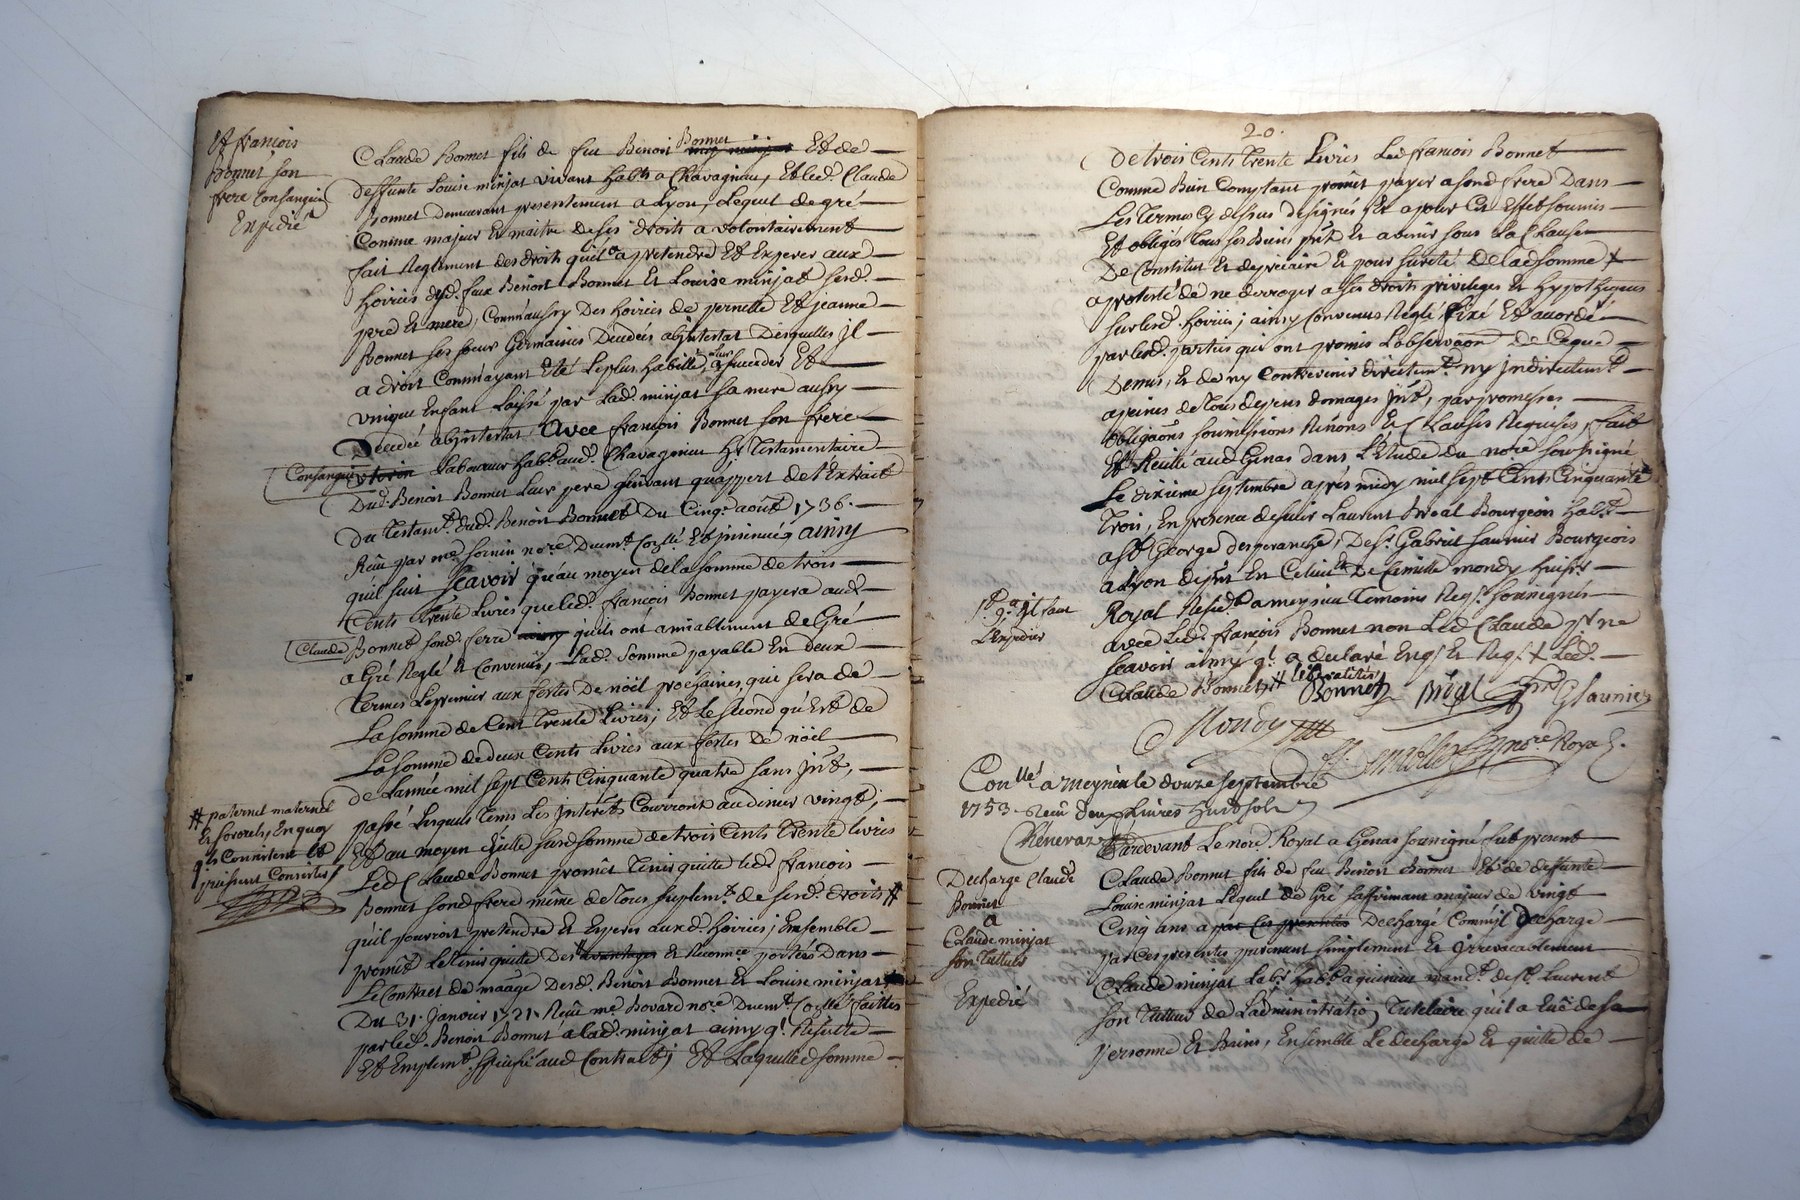 Et françois
Bonnet son
frere Consanguin
Expedié
Claude Bonnet fils de feu Benoit Bonnet Et de
deffunte Louise minjat vivant habts a Chavagnieu, Et led Claude
Bonnet demeurant presentement a Lyon, Lequel de gré
Comme majeur Et maitre de ses droits a volontairement
fait Reglement des droits quil a a pretendre Et Esperer aux
hoiries desd. feux Benoit Bonnet Et Louise minjat sesd.
pere Et mere, Comm'aussy Des hoiries de pernette Et jeanne
Bonnet ses soeurs Germaines Decedées abjntestat Desquelles Jl
a droit Comm'ayant Eté Le plus habille a leur succeder Et
unique Enfant Laissé par Lad. minjat sa mere aussy
Decedée abjntestat Avec françois Bonnet son frere
Consanguin Laboureur habt aud. Chavagnieu hr Testamentaire
Dud. Benoit Bonnet Leur pere suivant qu'appert de l'Extrait
Du Testamt. dud. Benoit Bonnet Du Cinq. août 1736.
Reçu par me sornin nore. Duemt. Collé Et jnsinué ainsy
quil suit Scavoir qu'au moyen de la somme de trois
Cents trente Livres que led. françois Bonnet payera aud.
Claude Bonnet sond. frere qu'ils ont amiablement de Gré
a Gré Reglé Et Convenüe, Lad. Somme payable En deux
termes Le premier aux festes De nöel prochaines, qui sera de
La somme de Cent trente Livres; Et Le second qu'Est de
La somme de deux Cents Livres aux festes De nöel
de L'année mil sept Cents Cinquante quatre sans Jnt,
passé Lesquels tems Les Jnterets Courront au dinier vingt;
Et au moyen d'jcelle susd somme de trois Cents trente livres
Led Claude Bonnet promet tenir quitte led françois
Bonnet sond frere même de tous suplemt. de sesd. droits #
qu'il pourroit pretendre Et Esperer auxd. hoiries; Ensemble
promet Le tenir quitte Des # avantages Et Reconnce portées Dans
Le Contract de maage Desd. Benoit Bonnet Et Louise minjat
Du 31. Janvier 1721. Reçu me Bovard nore Duemt Collé faittes
par led. Benoit Bonnet a lad. minjat ainsy q'l Resulte
Et Emplemt. specifié aud Contract; Et Laquelle d somme
# paternel maternel
Et sororels, En quoy
qls Consistent Et
puissent Consister
20.
de trois Cents trente Livres Led françois Bonnet
Comme Bien Comptant promet payer a sond frere Dans
Les Termes Cy dessus designés Et a pour Cet Effet soumis
Et obligés tous ses Biens pnts Et avenir sous La Clause
De Constitut Et de precaire Et pour sureté de lad somme
a protesté de ne derroger a ses droits privileges Et hypotheques
sur lesd. hoiries; ainsy Convenu Reglé, fixé Et accordé
par lesd. parties qui ont promis L'observaon De Ce que
Dessus, Et de ny Contrevenir directemt. ny jndirectemt.
a peines de tous depens domages Jnts, par promesses
obligaons soumissions Renons Et Clauses Requises, fait
Et Recitté aud Genas dans L'Etude du nore soussigné
Le dixieme septembre après midy mil sept Cents Cinquante
trois, En presence de sieur Laurent Breal Bourgeois habt.
a St George d'esperanche, De sr Gabriel saunier Bourgeois
a Lyon
Royal Resid. a meysieu temoins Req. soussignés
avec Led. françois Bonnet non Led Claude pr ne
scavoir ainsy q'l a declaré Enq. Et Req. # Led.
Claude Bonnet, # liberalités
Bonnet Bréal GSaunier
Mondy
nore Royal.
Conllé a Meyzieu le douze septembre
1753.
Decharge Claude
Bonnet
a
Claude minjat
son tutteur
Expedié
Pardevant Le nore Royal a Genas soussigné fut present
Claude Bonnet fils de feu Benoit Bonnet Et de deffunte
Louise minjat Lequel de Gré s'affirmant majeur de vingt
Cinq ans a par Ces presentes Dechargé Comm'jl decharge
par Ces presentes purement simplement Et jrrevocablement
Claude minjat Labr. habt a mandt. de St. Laurent
son tutteur de L'administratio, tutelaire qu'il a Eüe de sa
personne Et Biens, Ensemble Le decharge Et quitte de